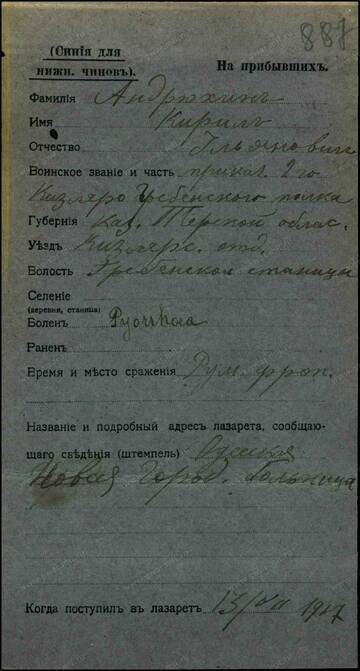 887
(Синія для
нижн. чиновъ). На прибывшихъ.
Фамилія Андрюхинъ
Имя Кирилъ
Отчество Ульяновичъ
Воинское званіе и часть приказ. 2го
Кизляро Гребенского полка
Губернія каз. Терской облас.
Уѣздъ Кизлярс. отд.
Волость Гребенской станицы
Селеніе
(деревня, станица)
Боленъ Pyorrhoea
Раненъ
Время и мѣсто сраженія Рум. фрон.
Названіе и подробный адресъ лазарета, сообщаю-
щаго свѣдѣнія (штемпель) Одесская
Новая Город. больница
Когда поступилъ въ лазаретъ 13/VII 1917